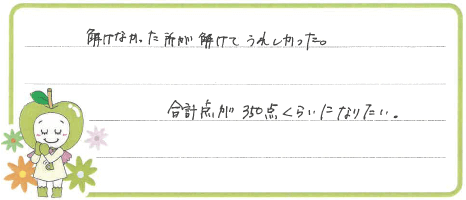 解けなかった所が解けてうれしかった。
合計点が350点くらいになりたい。